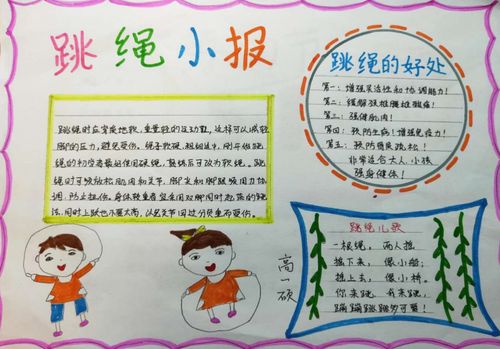 跳绳小报
跳绳时应穿质地软、重量轻的运动鞋,这样可以减轻
脚的压力,避免受伤。绳子软硬、粗细适中,刚开始跳
绳的初学者最好使用硬绳,熟练后可改为软绳。跳
绳时可放松肌肉和关节,脚尖和脚跟须用力协
调,防止扭伤。身体较重者宜采用双脚同时起落的跳
法,同时上跃也不要太高,以免关节因过分负重而受伤。
跳绳的好处
第一:增强灵活性和协调能力!
第二:缓解颈椎腰椎酸痛!
第三:强健肌肉!
第四:预防生病!增强免疫力!
第五:预防骨质疏松!
非常适合大人、小孩
强身健体!
跳绳儿歌
一根绳,两人摇,
摇下来,像小船;
摇上去,像小桥。
你来跳,我来跳,
蹦蹦跳跳多可爱!
高一硕